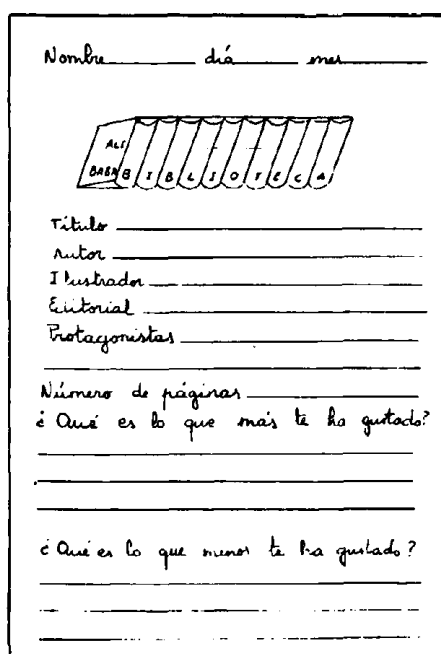 Nombre______ día____ mes____
ALI
BABA B I B L I O T E C A
Título ______
Autor ______
Ilustrador ______
Editorial ______
Protagonistas ______
Número de páginas ______
¿Qué es lo que más te ha gustado?
¿Qué es lo que menos te ha gustado?